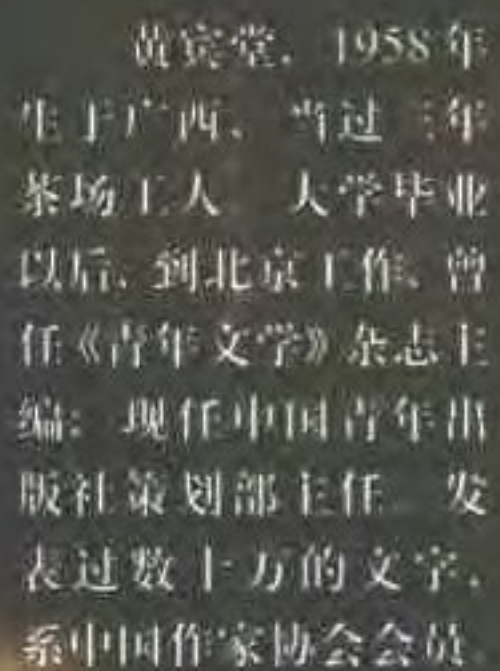 黄宾堂，1958年
生于广西，当过三年
茶场工人。大学毕业
以后，到北京工作，曾
任《青年文学》杂志主
编；现任中国青年出
版社策划部主任。发
表过数十万的文字，
系中国作家协会会员。